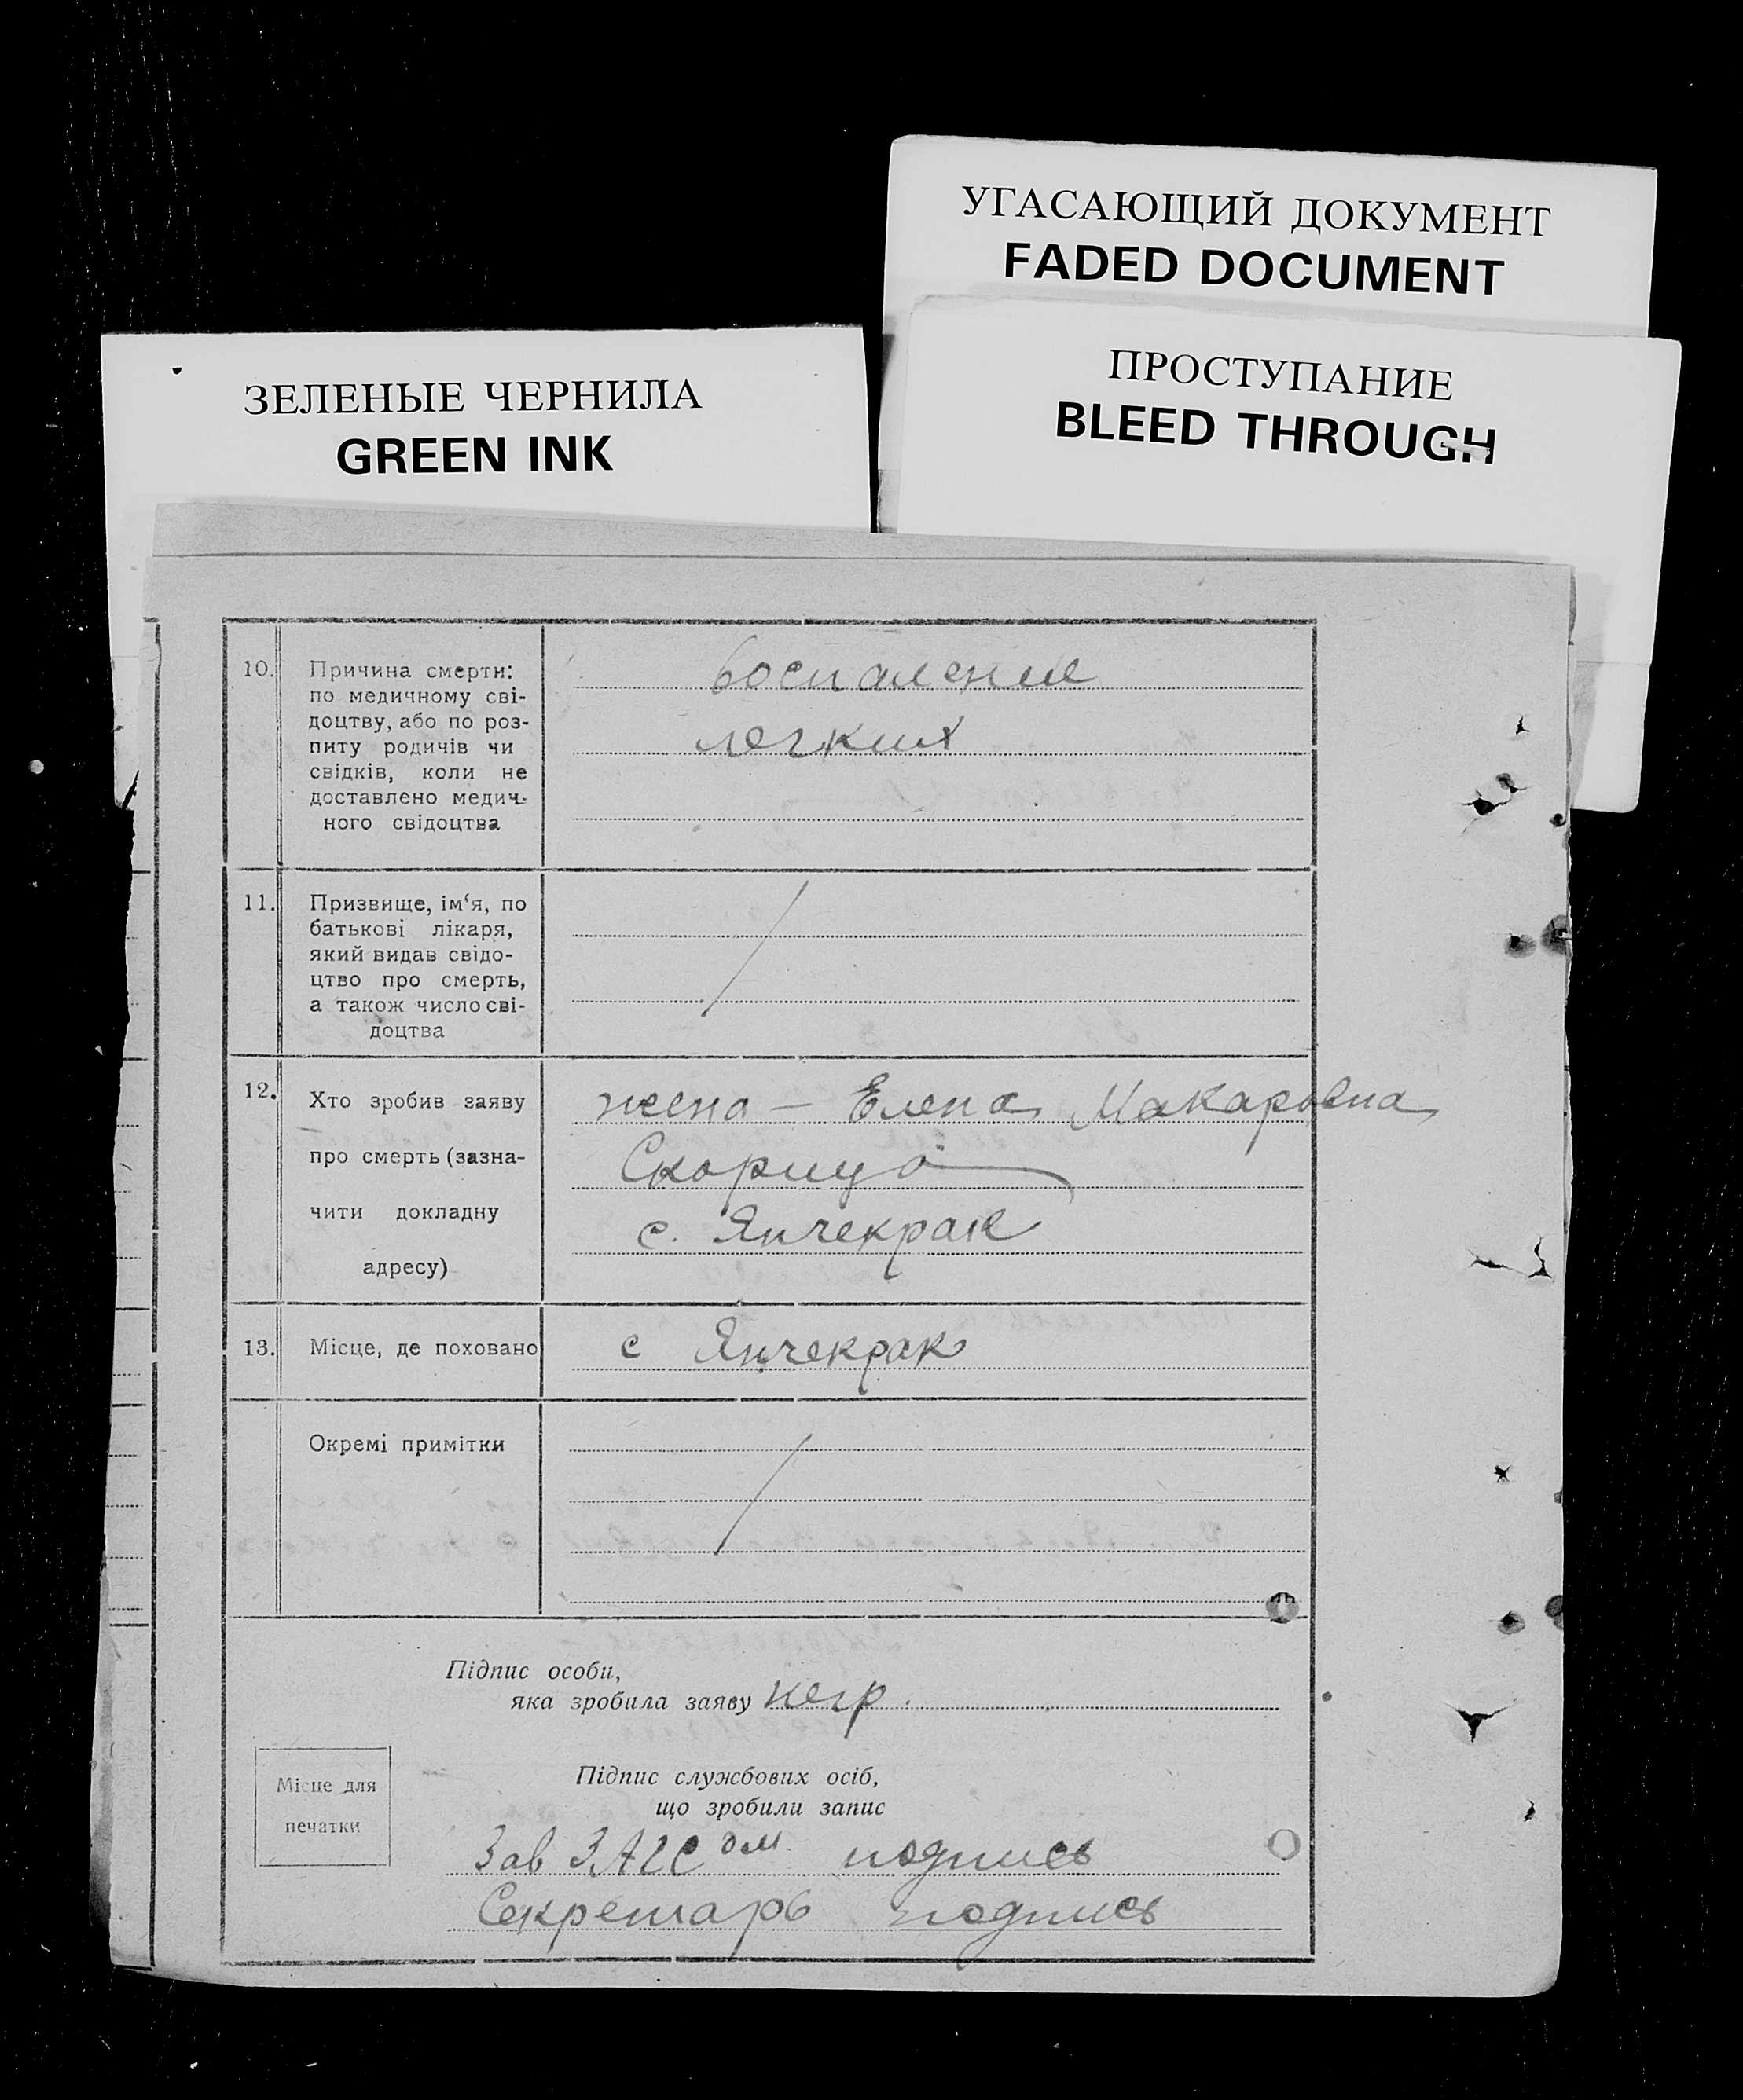 УГАСАЮЩИЙ ДОКУМЕНТ
FADED DOCUMENT
ПРОСТУПАНИЕ
BLEED THROUGH
ЗЕЛЕНЫЕ ЧЕРНИЛА
GREEN INK
10. Причина смерти:
по медичному сві-
доцтву, або по роз-
питу родичів чи
свідків, коли не
доставлено медич-
ного свідоцтва
воспаление
легких
11. Призвище, ім‘я, по
батькові лікаря,
який видав свідо-
цтво про смерть,
а також число сві-
доцтва
12. Хто зробив заяву
про смерть (зазна-
чити докладну
адресу)
жена — Елена Макаровна
Скорица
с. Янчекрак
13. Місце, де поховано
с Янчекрак
Окремі примітки
Підпис особи,
яка зробила заяву негр.
Місце для
печатки
Підпис службових осіб,
що зробили запис
Зав ЗАГСом подпись
Секретарь подпись